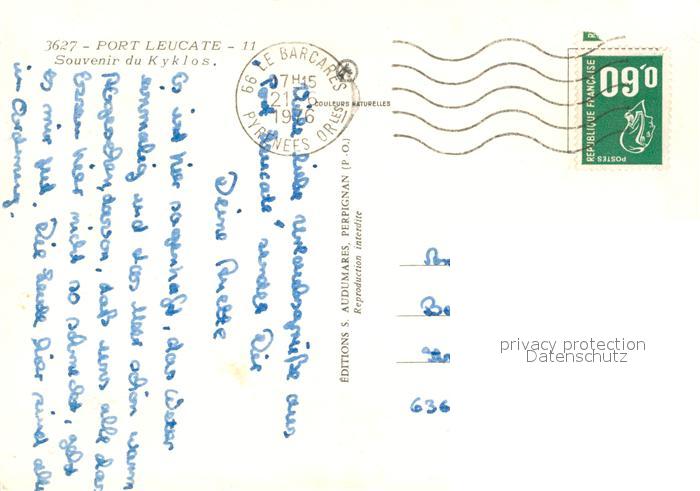 3627 - PORT LEUCATE - 11
Souvenir du Kyklos.
66 LE BARCARES
17H15
21-6
1976
PYRENEES ORLES
COULEURS NATURELLES
ÉDITIONS S. AUDUMARES, PERPIGNAN (P.-O.)
Reproduction interdite
0,60
REPUBLIQUE FRANÇAISE
POSTES
Viele liebe Urlaubsgrüße aus
Port Leucate sendet Dir
Deine Anette
Es ist hier sagenhaft, das Wetter
sonnig und das Meer schon warm
daß uns alle das
Essen hier nicht so schmeckt, geht
es mir gut. Die Leute hier sind alle
in Ordnung.
636
privacy protection
Datenschutz